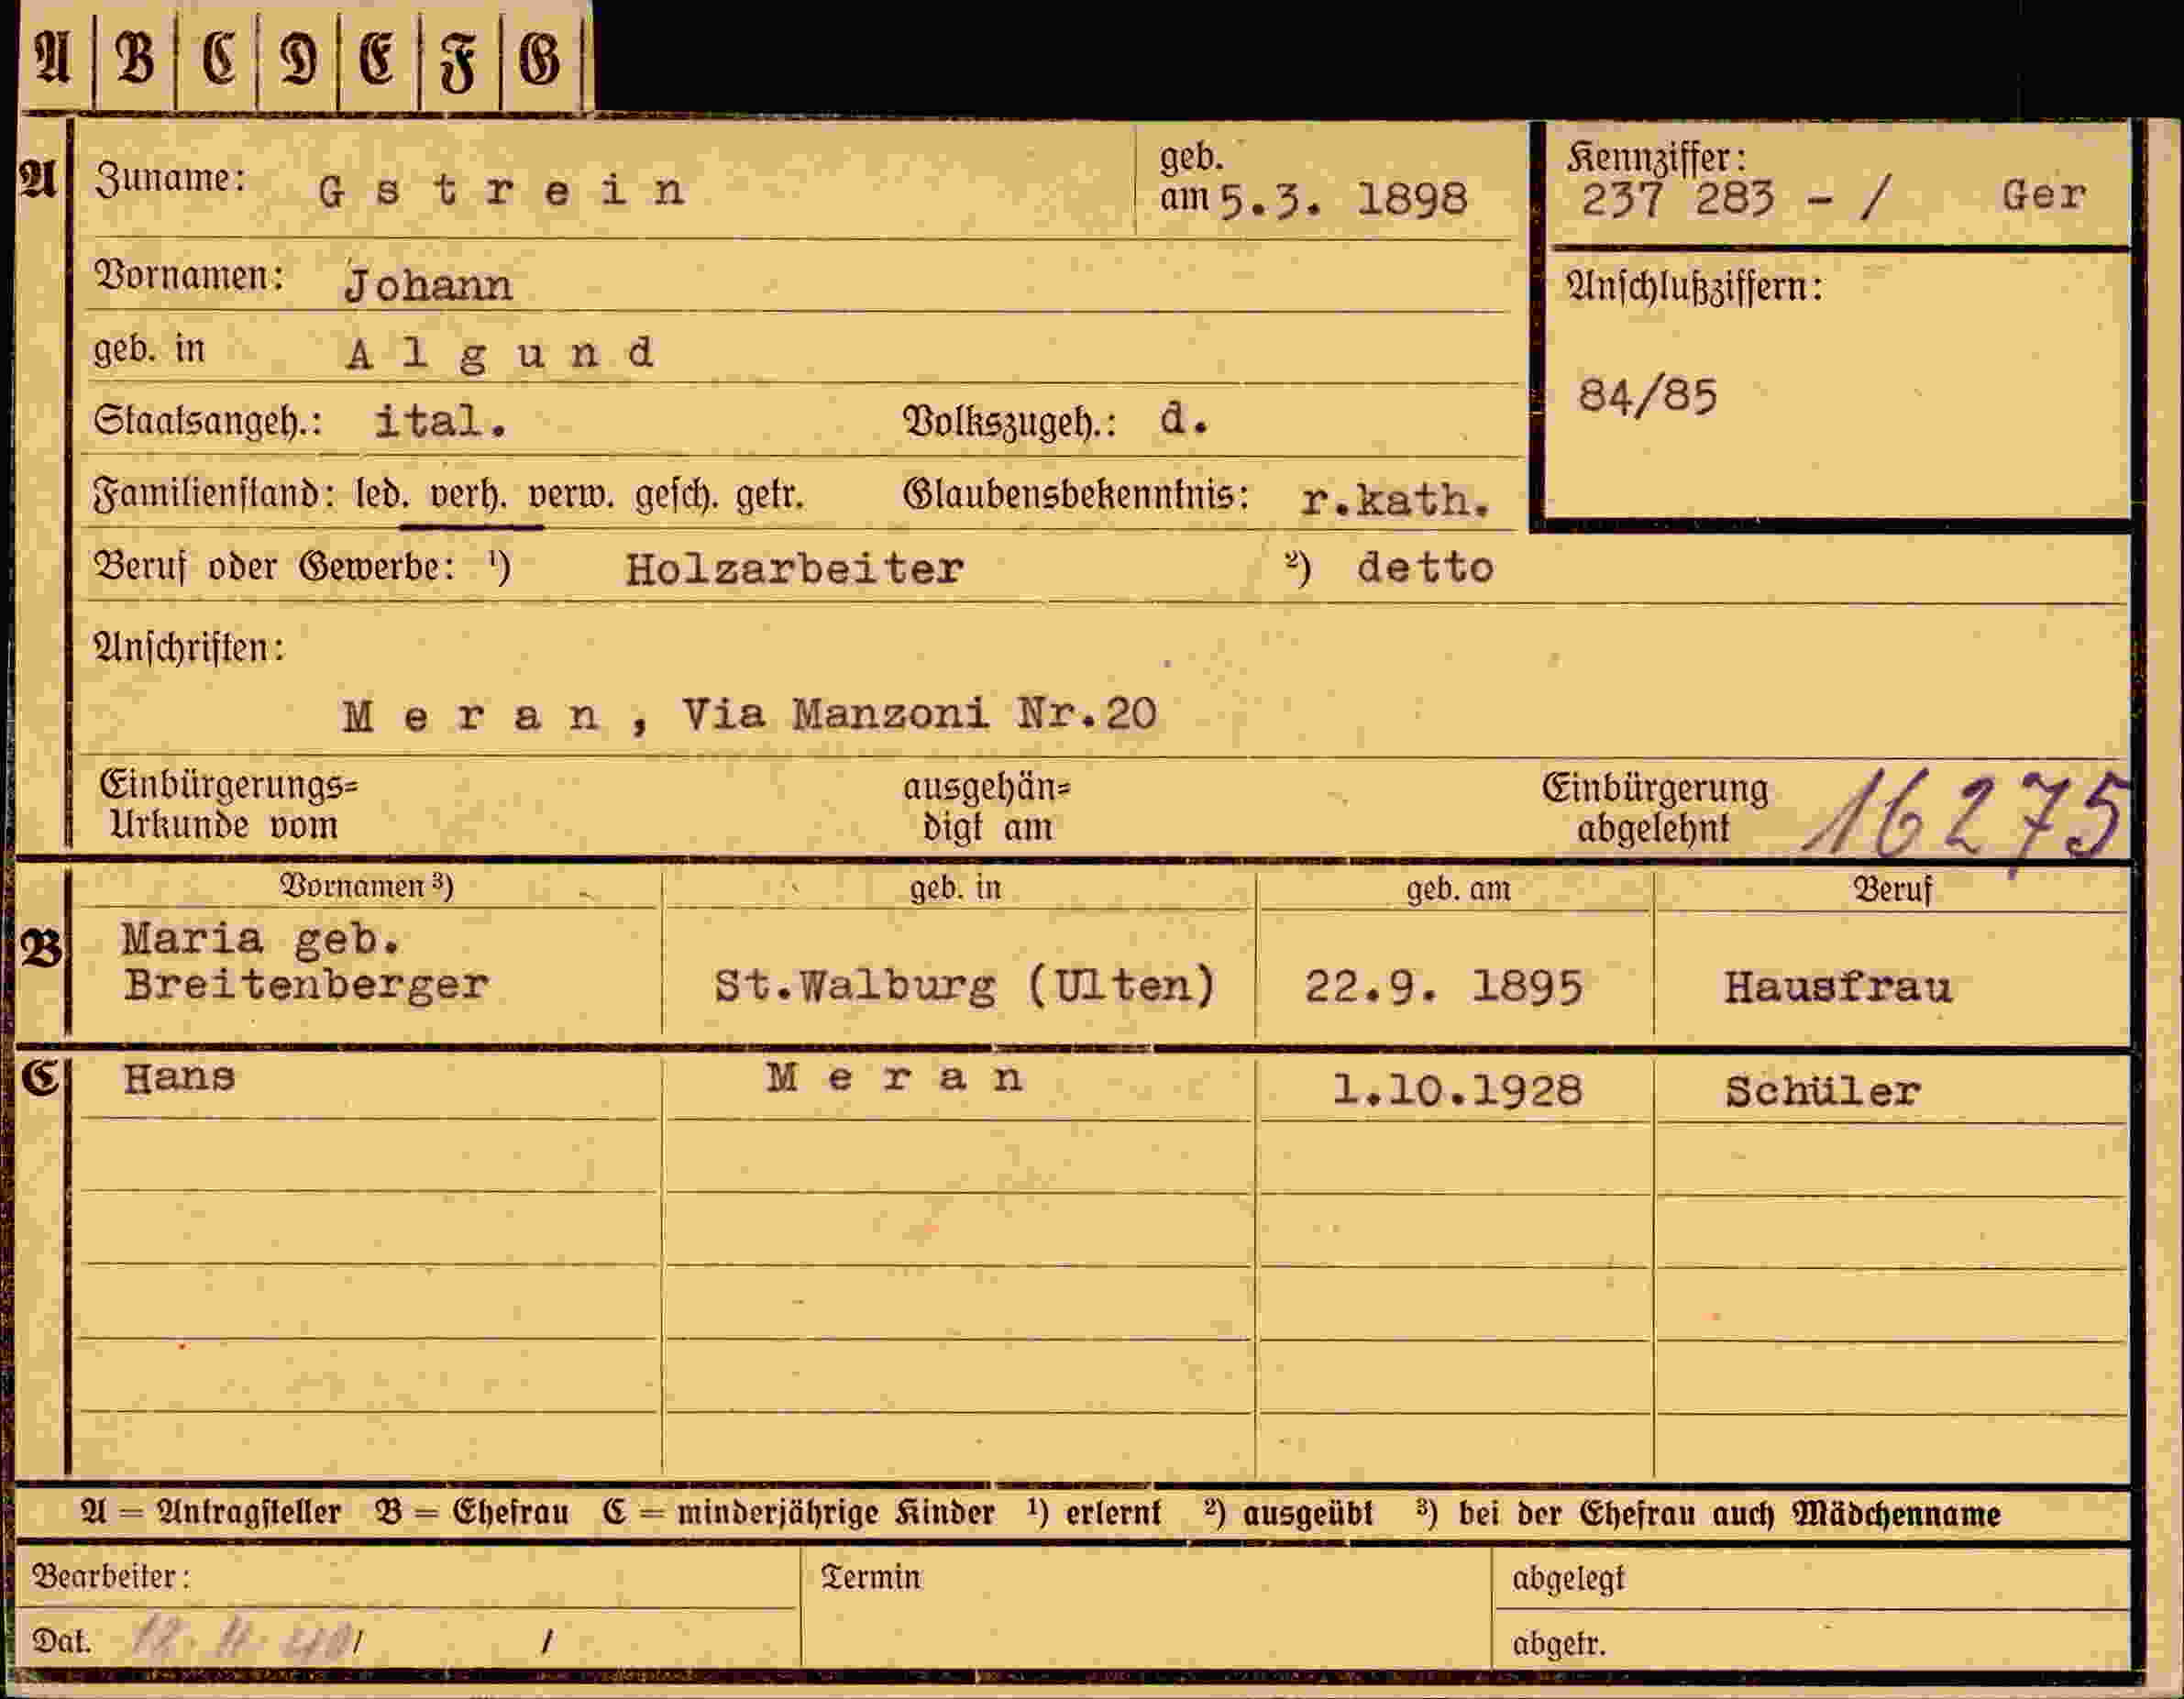 A B C D E F G
A Zuname: Gstrein geb. am 5.3. 1898 Kennziffer: 237 283 - / Ger
Vornamen: Johann Anschlußziffern:
geb. in Algund
84/85
Staatsangeh.: ital. Volkszugeh.: d.
Familienstand: led. verh. verw. gesch. getr. Glaubensbekenntnis: r.kath.
Beruf oder Gewerbe: ¹) Holzarbeiter ²) detto
Anschriften:
Meran, Via Manzoni Nr.20
Einbürgerungs= ausgehän= Einbürgerung 16275
Urkunde vom digt am abgelehnt
Vornamen ³) geb. in geb. am Beruf
B Maria geb.
Breitenberger St.Walburg (Ulten) 22.9. 1895 Hausfrau
C Hans Meran 1.10.1928 Schüler
A = Antragsteller B = Ehefrau C = minderjährige Kinder ¹) erlernt ²) ausgeübt ³) bei der Ehefrau auch Mädchenname
Bearbeiter: Termin abgelegt
Dat. / / abgetr.